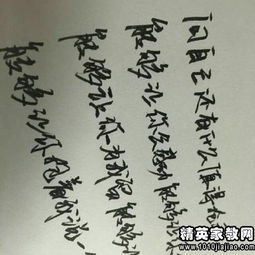 问自己还有什么值得
能够让你感动能够
能够让你为我留能够
能够让你抱着我说一
精英家教网
www.1010jiajiao.com